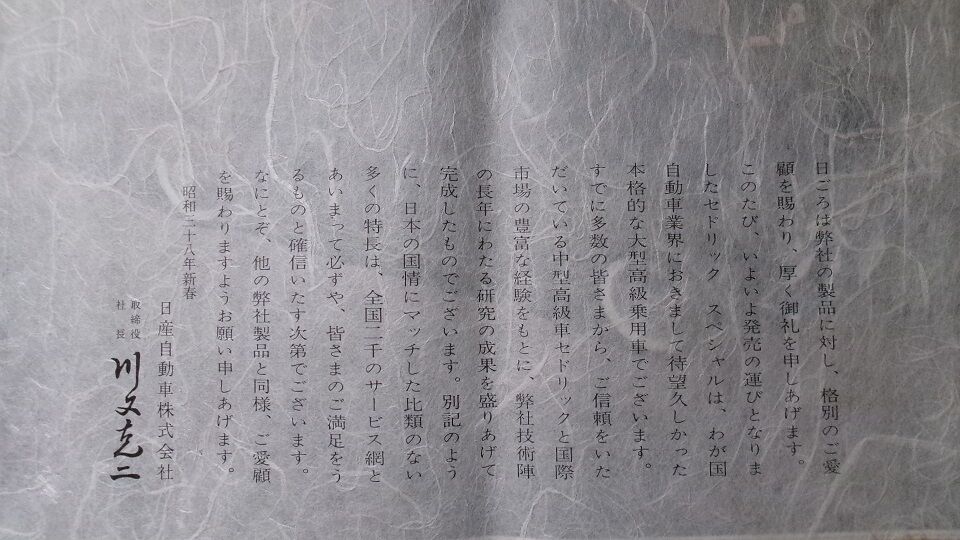 日ごろは弊社の製品に対し、格別のご愛
顧を賜わり、厚く御礼を申しあげます。
このたび、いよいよ発売の運びとなりま
したセドリック スペシャルは、わが国
自動車業界におきまして待望久しかった
本格的な大型高級乗用車でございます。
すでに多数の皆さまから、ご信頼をいた
だいている中型高級車セドリックと国際
市場の豊富な経験をもとに、弊社技術陣
の長年にわたる研究の成果を盛りあげて
完成したものでございます。別記のよう
に、日本の国情にマッチした比類のない
多くの特長は、全国二千のサービス網と
あいまって必ずや、皆さまのご満足をう
るものと確信いたす次第でございます。
なにとぞ、他の弊社製品と同様、ご愛顧
を賜わりますようお願い申しあげます。
昭和三十八年新春
日産自動車株式会社
取締役
社長 川又克二